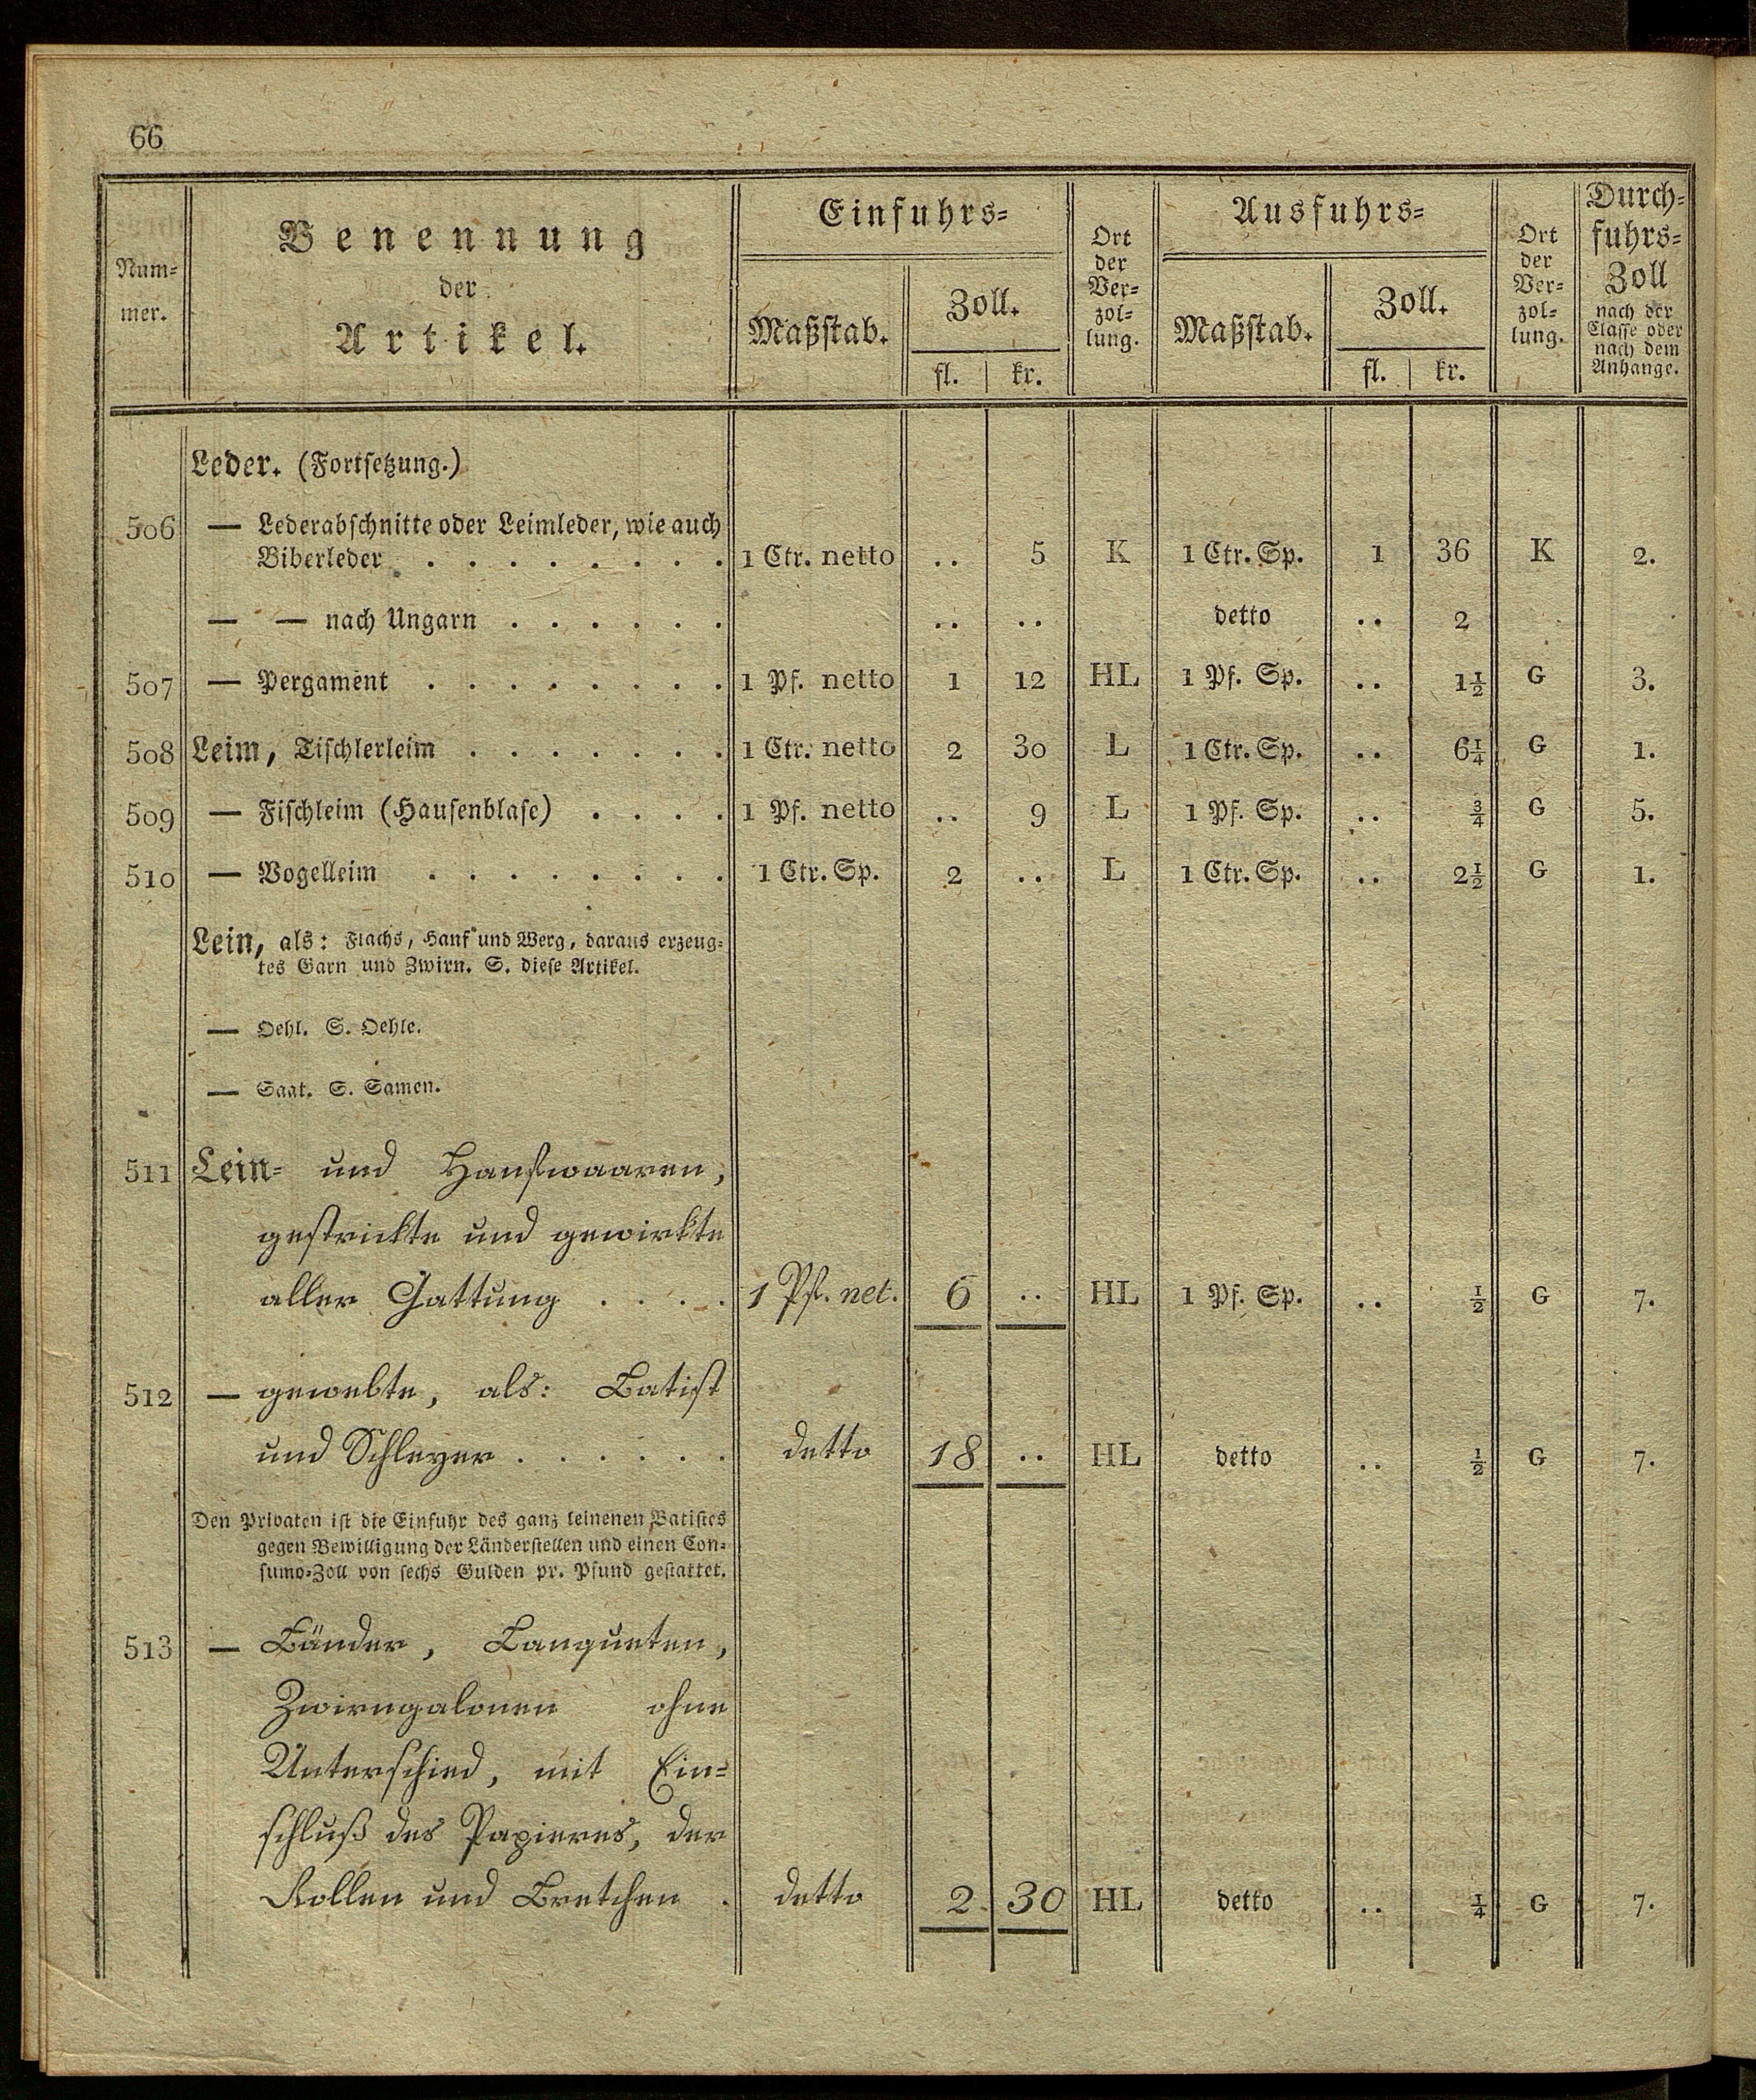 66
Num-
mer.
Benennung
der
Artikel.
Einfuhrs-
Maßstab.
Zoll.
fl. | kr.
Ort
der
Ver-
zol-
lung.
Ausfuhrs-
Maßstab.
Zoll.
fl. | kr.
Ort
der
Ver-
zol-
lung.
Durch-
fuhrs-
Zoll
nach der
Classe oder
nach dem
Anhange.
Leder. (Fortsetzung.)
506 — Lederabschnitte oder Leimleder, wie auch
Biberleder . . . . . . . . 1 Ctr. netto .. 5 K 1 Ctr. Sp. 1 36 K 2.
— — nach Ungarn . . . . . . .. .. detto .. 2
507 — Pergament . . . . . . . . 1 Pf. netto 1 12 HL 1 Pf. Sp. .. 1½ G 3.
508 Leim, Tischlerleim . . . . . . . 1 Ctr. netto 2 30 L 1 Ctr. Sp. .. 6¼ G 1.
509 — Fischleim (Hausenblase) . . . . 1 Pf. netto .. 9 L 1 Pf. Sp. .. ¾ G 5.
510 — Vogelleim . . . . . . . . 1 Ctr. Sp. 2 .. L 1 Ctr. Sp. .. 2½ G 1.
Lein, als: Flachs, Hanf und Werg, daraus erzeug-
tes Garn und Zwirn. S. diese Artikel.
— Oehl. S. Oehle.
— Saat. S. Samen.
511 Lein- und Hanfwaaren,
gestrickte und gewirkte
aller Gattung . . . . 1 Pf. net. 6 .. HL 1 Pf. Sp. .. ½ G 7.
512 — gewebte, als: Batist
und Schleyer . . . . . . detto 18 .. HL detto .. ½ G 7.
Den Privaten ist die Einfuhr des ganz leinenen Batistes
gegen Bewilligung der Länderstellen und einen Con-
sumo-Zoll von sechs Gulden pr. Pfund gestattet.
513 — Bänder, Langueten,
Zwirngalonen ohne
Unterschied, mit Ein-
schluß des Papieres, der
Rollen und Bretchen . detto 2 30 HL detto .. ¼ G 7.